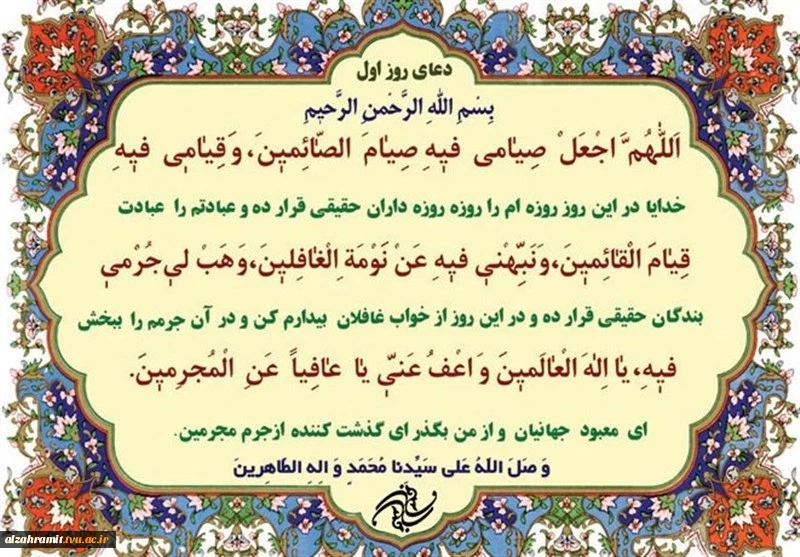 دعای روز اول
بِسْمِ اللهِ الرَّحْمنِ الرَّحیٖمِ
اَللّٰهُمَّ اجْعَلْ صِیٰامی فیٖهِ صِیٰامَ الصّٰائِمیٖنَ، وَقِیٰامیٖ فیٖهِ
خدایا در این روز روزه ام را روزه روزه داران حقیقی قرار ده و عبادتم را عبادت
قِیٰامَ الْقٰائِمیٖنَ،وَنَبِّهْنیٖ فیٖهِ عَنْ نَوْمَةِ الْغٰافِلیٖنَ،وَهَبْ لیٖ جُرْمیٖ
بندگان حقیقی قرار ده و در این روز از خواب غافلان بیدارم کن و در آن جرمم را ببخش
فیٖهِ، یٰا اِلٰهَ الْعٰالَمیٖنَ وَ اعْفُ عَنّیٖ یٰا عٰافِیاً عَنِ الْمُجرِمیٖنَ.
ای معبود جهانیان و از من بگذر ای گذشت کننده ازجرم مجرمین.
وَ صَلَ اللهُ عَلی سَیِّدنا مُحَمَدٍ وَ الِهِ الطّاهِرینَ
alzahramit.tvu.ac.ir